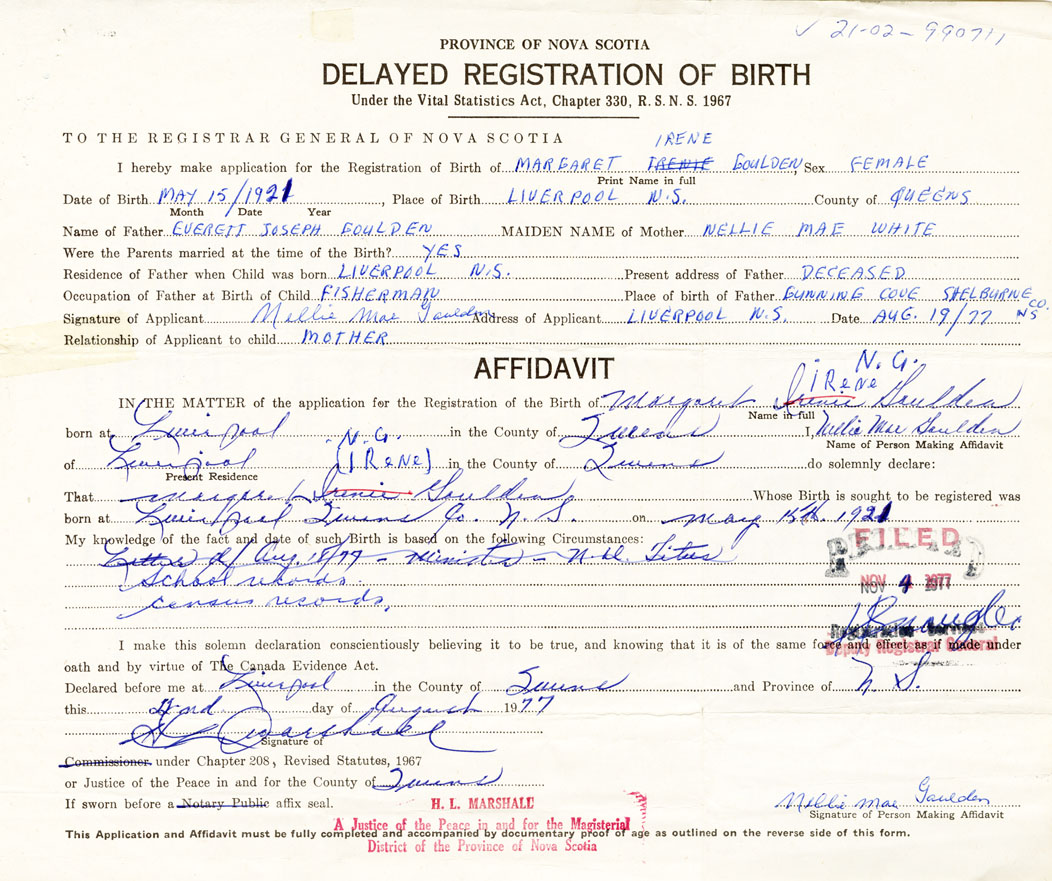 ✓ 21-02-990711
PROVINCE OF NOVA SCOTIA
DELAYED REGISTRATION OF BIRTH
Under the Vital Statistics Act, Chapter 330, R. S. N. S. 1967
TO THE REGISTRAR GENERAL OF NOVA SCOTIA
IRENE
I hereby make application for the Registration of Birth of MARGARET IRENIE GOULDEN, Sex FEMALE
Print Name in full
Date of Birth MAY 15/1921, Place of Birth LIVERPOOL N.S. County of QUEENS
Month Date Year
Name of Father EVERETT JOSEPH GOULDEN MAIDEN NAME of Mother NELLIE MAE WHITE
Were the Parents married at the time of the Birth? YES
Residence of Father when Child was born LIVERPOOL N.S. Present address of Father DECEASED
Occupation of Father at Birth of Child FISHERMAN Place of birth of Father GUNNING COVE SHELBURNE CO. NS
Signature of Applicant Nellie Mae Goulden Address of Applicant LIVERPOOL N.S. Date AUG. 19/77
Relationship of Applicant to child MOTHER
AFFIDAVIT
N. G.
IRene
IN THE MATTER of the application for the Registration of the Birth of Margaret Irenie Goulden
Name in full
born at Liverpool in the County of Queens I, Nellie Mae Goulden
Name of Person Making Affidavit
N. G.
of Liverpool [IRene] in the County of Queens do solemnly declare:
Present Residence
That Margaret Irenie Goulden Whose Birth is sought to be registered was
born at Liverpool Queens Co. N. S. on May 15th. 1921
My knowledge of the fact and date of such Birth is based on the following Circumstances:
FILED
Letter d/ Aug. 18/77 - Minister - N. H. Titus
School records.
NOV 4 1977
census records.
Deputy Registrar General
I make this solemn declaration conscientiously believing it to be true, and knowing that it is of the same force and effect as if made under
oath and by virtue of The Canada Evidence Act.
Declared before me at Liverpool in the County of Queens and Province of N. S.
this day of August 1977
H L Marshall
Signature of
Commissioner under Chapter 208, Revised Statutes, 1967
or Justice of the Peace in and for the County of Queens
If sworn before a Notary Public affix seal.
H. L. MARSHALL
A Justice of the Peace in and for the Magisterial
District of the Province of Nova Scotia
Nellie Mae Goulden
Signature of Person Making Affidavit
This Application and Affidavit must be fully completed and accompanied by documentary proof of age as outlined on the reverse side of this form.